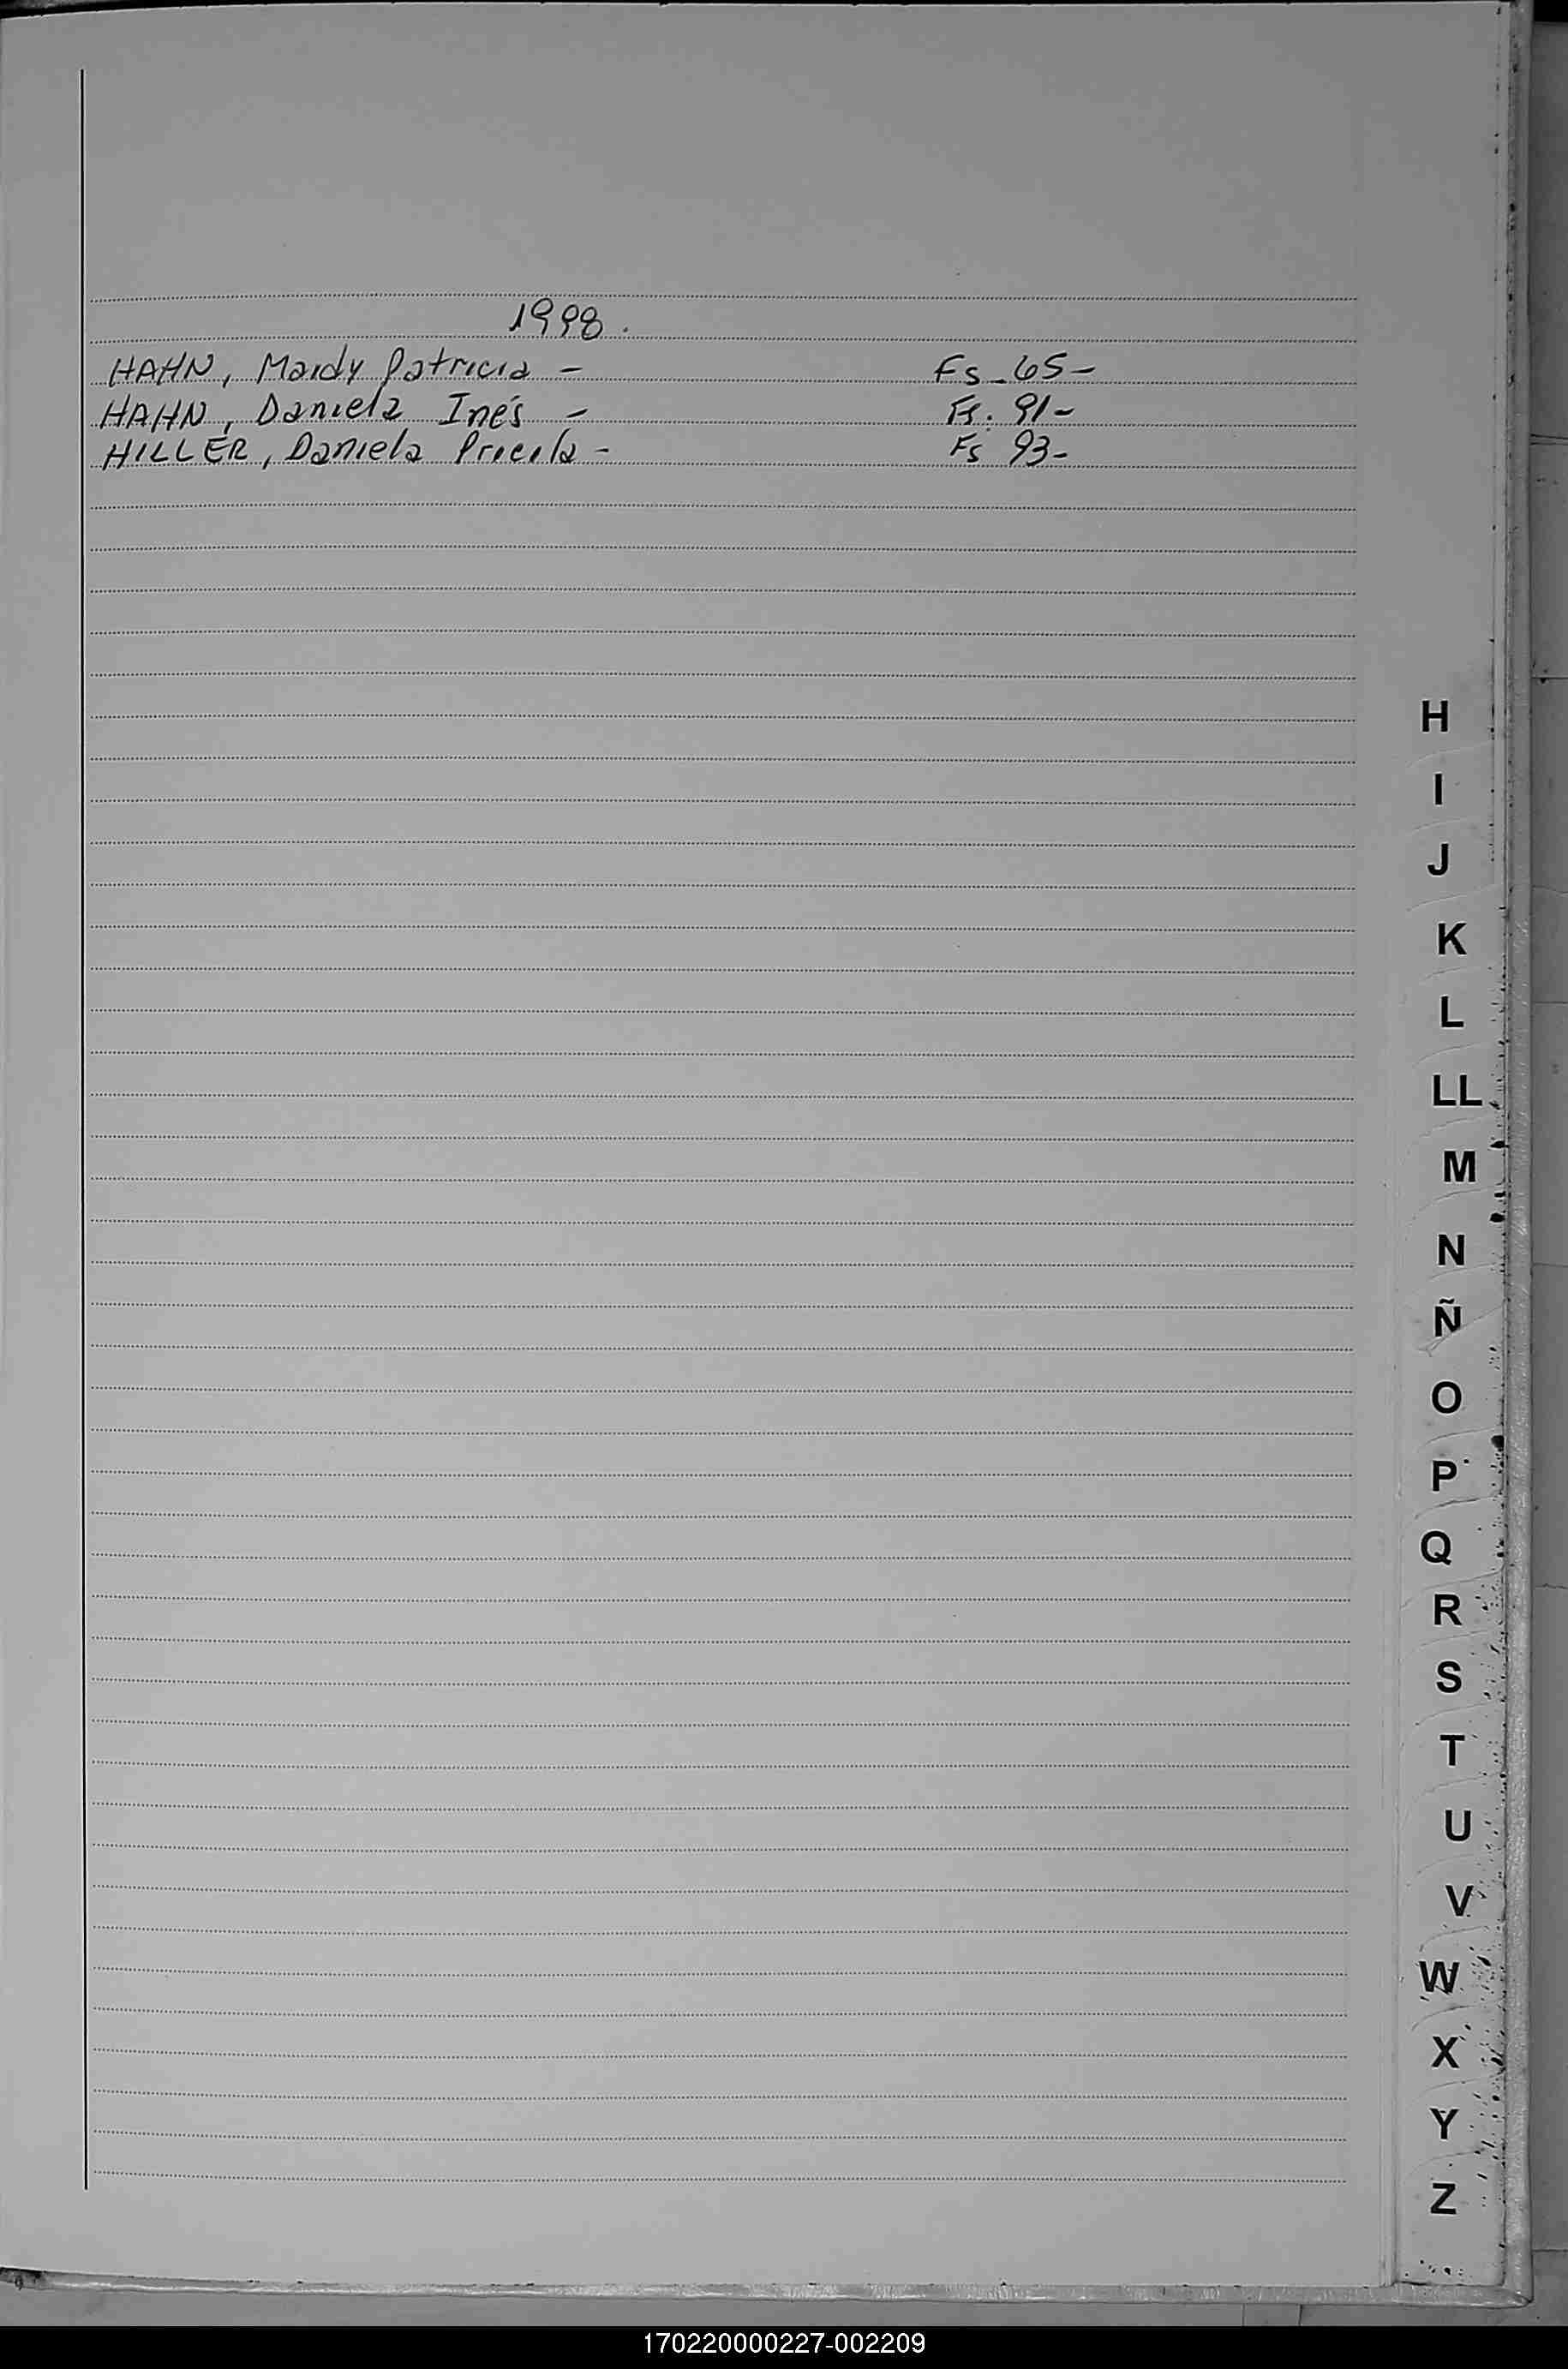 1998.
HAHN, Maidy Patricia - Fs - 65 -
HAHN, Daniela Inés - Fs. 91 -
HILLER, Daniela - Fs 93 -
H
I
J
K
L
LL
M
N
Ñ
O
P
Q
R
S
T
U
V
W
X
Y
Z
170220000227-002209